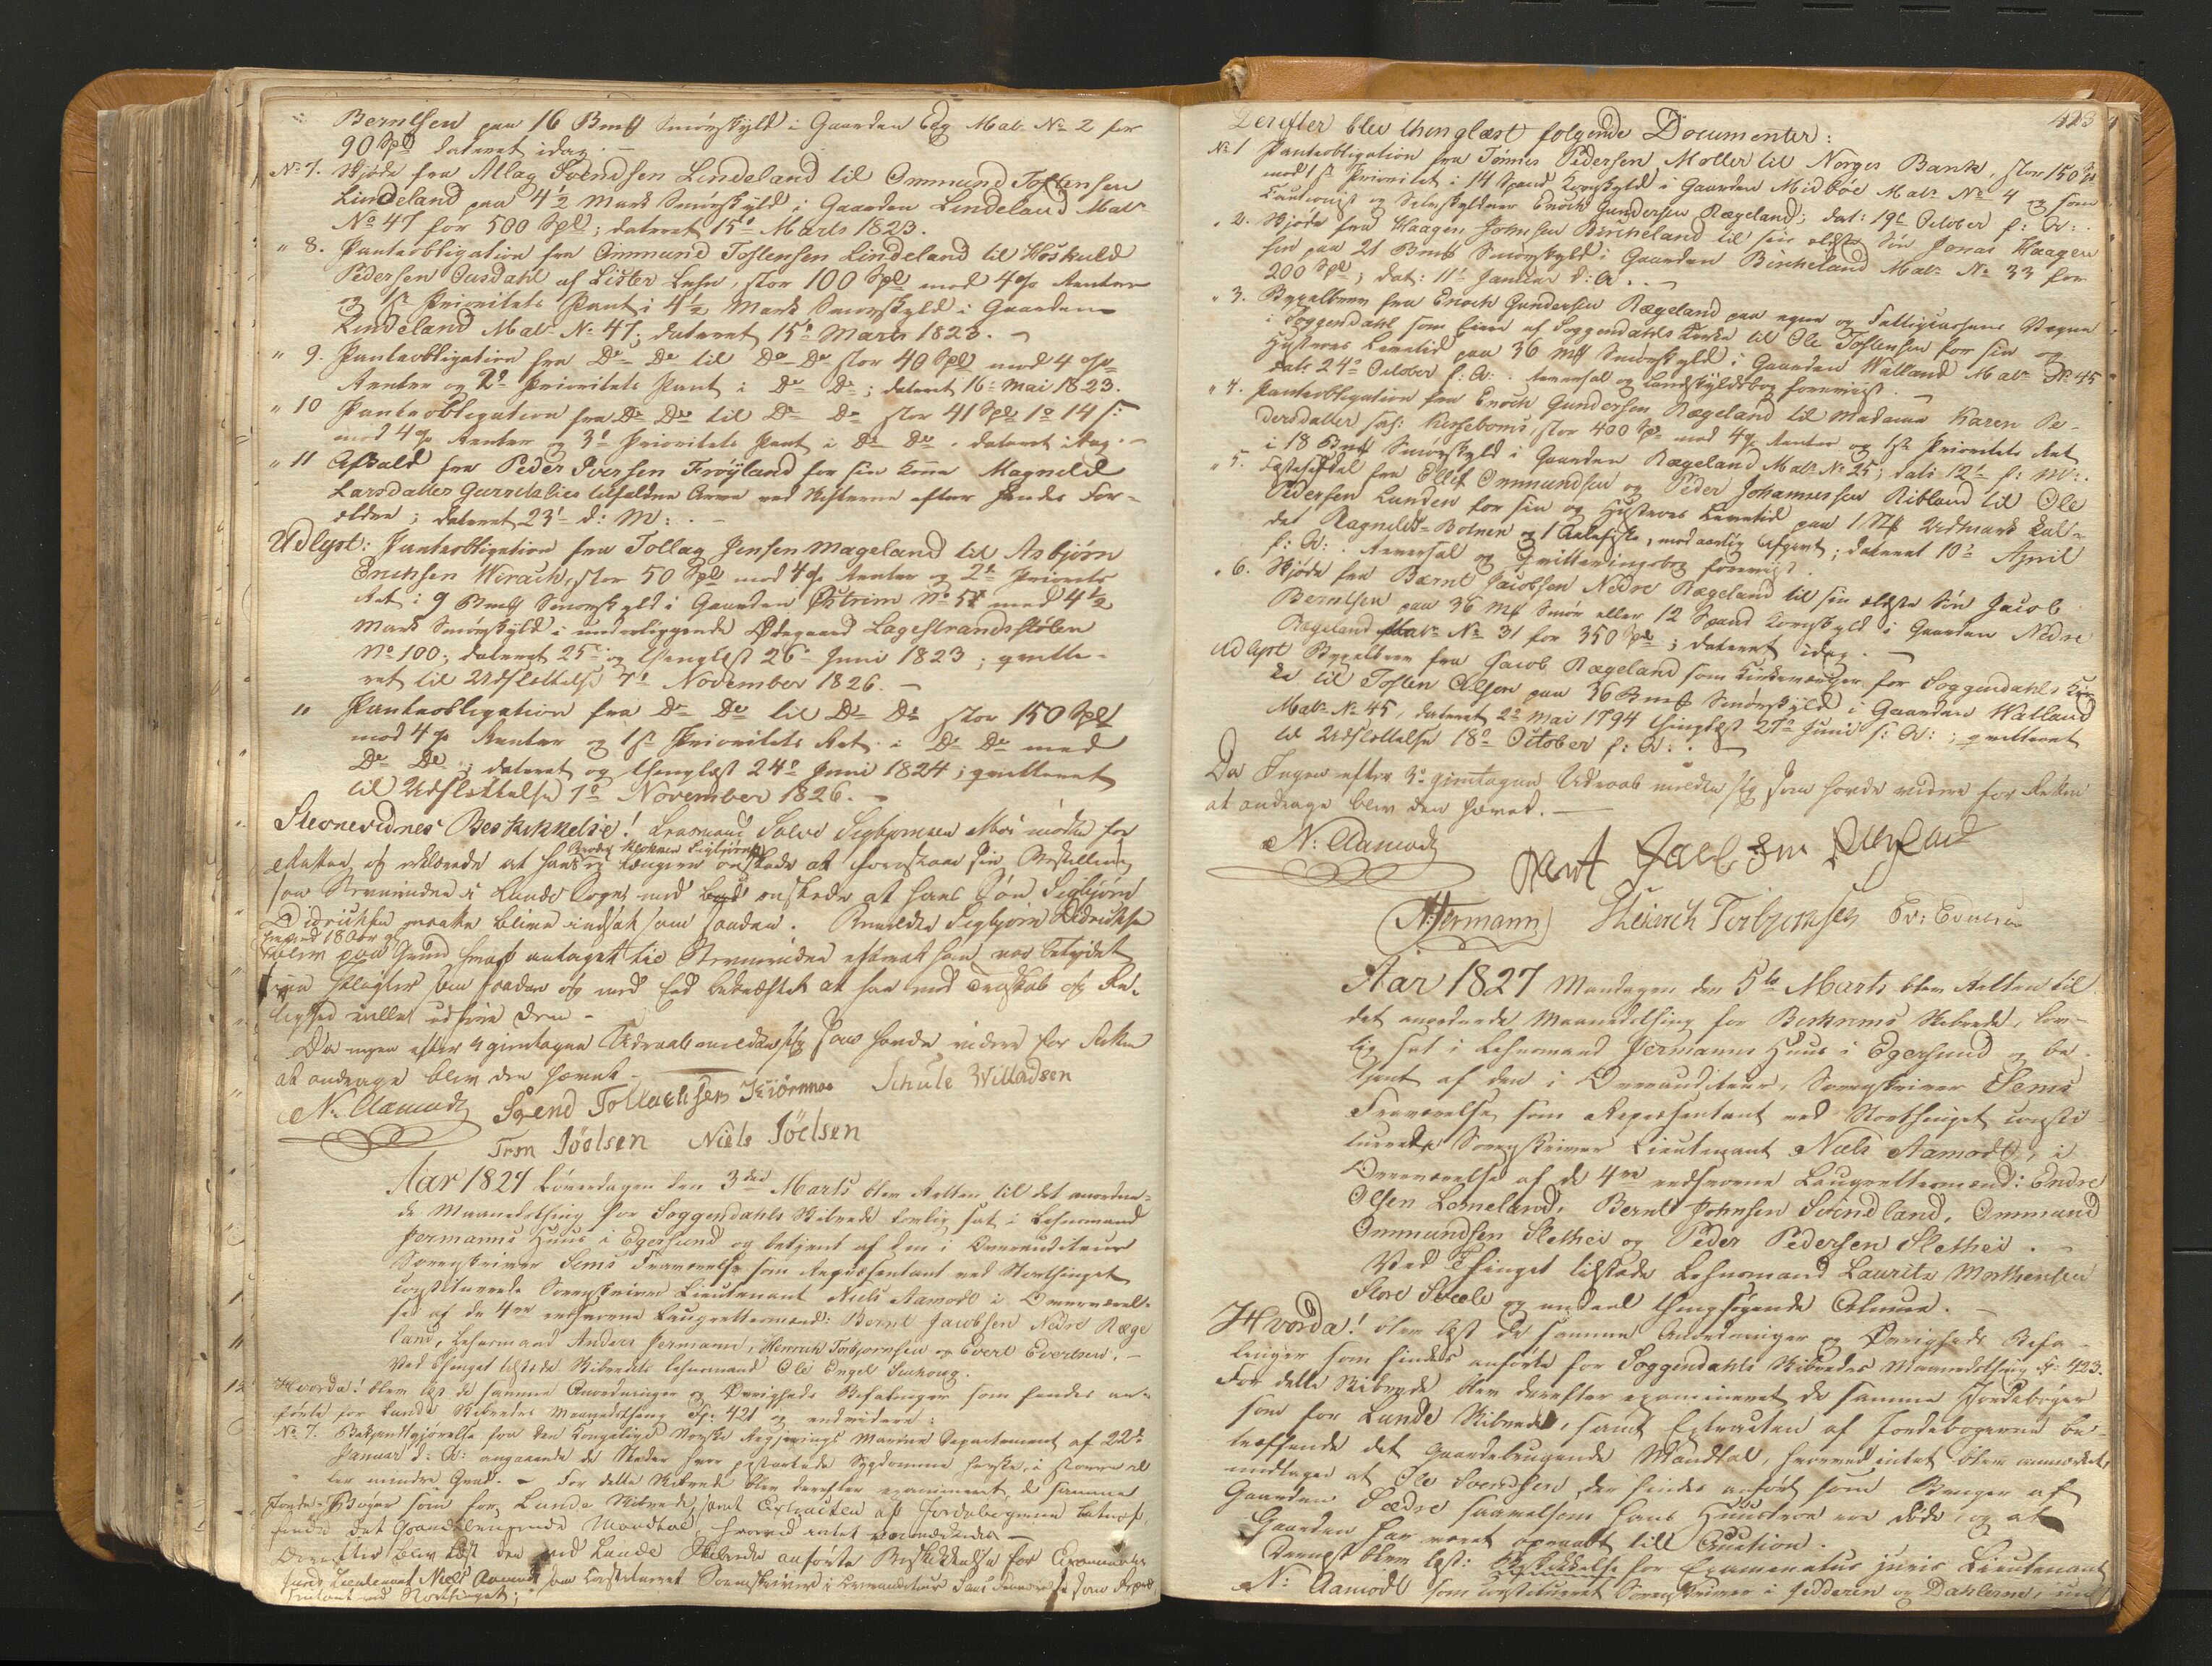 Berntsen paa 16 Bmß Smørskyld i Gaarden Eeg Mat. No 2 for
90 Spd dateret idag. —
No 7. Skjøde fra Atlag Svendsen Lindeland til Ommund Tostensen
Lindeland paa 4½ Mark Smørskyld i Gaarden Lindeland Matr
No 47 for 500 Spd; dateret 15de Marts 1823.
" 8. Panteobligation fra Ommund Tostensen Lindeland til Hoskuld
Pedersen Ousdahl af Lister Lehn, stor 100 Spd mod 4 % Renter
og 1ste Prioritets Pant i 4½ Mark Smørskyld i Gaarden
Lindeland Mat. No 47; dateret 15de Marts 1823. —
" 9. Panteobligation fra Do Do til Do Do stor 40 Spd mod 4 %
Renter og 2den Prioritets Pant i Do Do; dateret 16de Mai 1823.
" 10 Panteobligation fra Do Do til Do Do stor 41 Spd 1 14 s:
mod 4 % Renter og 3die Prioritets Pant i Do Do. dateret idag. —
" 11 Afkald fra Peder Iversen Frøyland for sin Kone Magnild
Larsdatter Gurrebalies tilfaldne Arve ved Skifterne efter hendes For-
ældre; dateret 23de d: M: . —
Udlyst: Panteobligation fra Tollag Jensen Mageland til Asbjørn
Erichsen Wirach, stor 50 Spd mod 4 % Renter og 2den Priorets
Ret i 9 Bmß Smørskyld i Gaarden Østrem No 51 med 4½
Mark Smørskyld i underliggende Ødegaard Lagestrandsstølen
No 100; dateret 25de og thinglæst 26de Juni 1823; qvitte-
ret til Udslettelse 7de November 1826. —
" Panteobligation fra Do Do til Do Do stor 150 Spd
mod 4 % Renter og 1ste Prioritets Ret i Do Do med
Do Do; dateret og thinglæst 24de Juni 1824; qvitteret
til Udslettelse 7de November 1826. —
Stevnevidnes Beskikkelse! Lensmand Salve Sigbjørnsen Moi mødte for
Broder Klokker Sigbjørnsen
Retten og erklærede at hans ei længere ønskede at forestaae sin Bestilling
som Stevnevidne i Lunde Sogn med ønskede at hans Søn Sigbjørn
Didrichsen maatte blive indsat som saadan. Anmeldte Sigbjørn Didrichsen
18 Aar gl
blev paa Grund heraf antaget til Stevnevidne efterat han var betydet
sine Pligter som saadan og med Eed bekræftet at han med Troskab og Re-
lighed ville udføre dem —
Da ingen efter 3 gientagne Udraab meldte sig som havde videre for Retten
at andrage blev den hævet. —
N. Aamodt Svend Tollachsen Kiørmoe Schule Willadsen
Tron Jöelsen Niels Jöelsen
Aar 1827 Løverdagen den 3die Marts blev Retten til det anordne-
de Maanedsthing for Soggendahls Skibrede lovlig sat i Lehnsmand
Hermanns Huus i Egersund og betjent af den i Overauditeur
Sorenskriver Sems Fraværelse som Repræsentant ved Storthinget
constituerede Sorenskriver Lieutenant Niels Aamodt i Overværel-
se af de 4re eedsvorne Laugrettesmænd: Bernt Jacobsen Nedre Ræge
land, Lehnsmand Anders Hermann, Henrich Torbjørnsen og Evert Evertsen. —
Ved Thinget tilstede Skibredets Lehnsmand Ole Engel
Hvorda! blev læst de samme Anordninger og Øvrigheds Befalinger som findes an-
førte for Lunde Skibredes Maanedsthing Fp: 421 og endvidere:
No 7. Bekjendtgjørelse fra den Kongelige Norske Regjerings Marine Departement af 22de
Januar d: A: angaaende de Steder hvor pestartede Sygdomme herske, i større el-
ler mindre Grad. — For dette Skibrede blev derefter examineret, de samme
Jorde-Bøger som for Lunde Skibrede, samt Extracten af Jordebøgerne betref-
fende det Gaardbrugende Mandtal, hvorved intet
Derefter blev læst den ved Lunde Skibrede anførte Beskikkelse for Examinatus
juris Lieutenant Niels Aamodt som Constitueret Sorenskriver i Overauditeur Sems Fraværelse som Repræ
sentant ved Storthinget;
423
Derefter blev thinglæst følgende Documenter:
No 1 Panteobligation fra Tønnes Pedersen Møller til Norges Bank, stor 150 Spd
mod 1ste Prioritet i 14 Spand Kornskyld i Gaarden Midbøe Mat. No 4 og som
Cautionist og Selvskyldner Enoch Gundersen Rægeland; dat: 19de October f: A: .
" 2. Skjøde fra Haagen Johnsen Bircheland til sin ældste Søn Jonas Haagen
sen paa 21 Bmß Smørskyld i Gaarden Bircheland Mat. No 33 for
200 Spd; dat: 11te Januar d: A: . —
" 3. Bygselbrev fra Enoch Gundersen Rægeland paa egne og Fattigcassens Vegne
i Soggendahl som Eiere af Soggendahls Kirke til Ole Tostensen for sin og
Hustrues Levetid paa 36 Mß Smørskyld i Gaarden Walland Mat. No 45
dat: 24de October f: A: . Reversal og Landskyldsbog foreviist. —
" 4. Panteobligation fra Enoch Gundersen Rægeland til Madame Karen Pe-
dersdatter sal: Kirseboms, stor 400 Spd mod 4 % Renter og 1ste Prioritets Ret
i 18 Bmß Smørskyld i Gaarden Rægeland Mat. No 25; dat: 12te f: M: .
" 5. Fæsteseddel fra Ellef Ommundsen og Peder Johannessen Ribland til Ole
Pedersen Lunden for sin og Hustrues Levetid paa 1 St. Udmark kal-
det Ragnilds-Botnen og 1 Aalekiste, mod aarlig Afgivt; dateret 10de April
f: A: . Reversal og Qvitteringsbog foreviist.
" 6. Skjøde fra Bærnt Jacobsen Nedre Rægeland til sin ældste Søn Jacob
Berntsen paa 36 Mß Smør eller 12 Spand Kornskyld i Gaarden Nedre
Rægeland Mat. No 31 for 350 Spd; dateret idag. —
Udlyst Bygselbrev fra Jacob Rægeland som Kirkeværger for Soggendahls Kir
ke til Tosten Olsen paa 36 Bmß Smørskyld i Gaarden Walland
Mat. No 45, dateret 2de Mai 1794 thinglæst 27de Juni s: A: ; qvitteret
til Udslettelse 18de October f: A: . —
Da Ingen efter 3de gientagne Udraab meldte sig som havde videre for Retten
at andrage blev den hævet. —
N: Aamodt Bent Jacobsen Rægland
A. Hermann Heinrich Torbjørnsen Ev: Evertsen
Aar 1827 Mandagen den 5te Marts blev Retten til
det anordnede Maanedsthing for Birkrems Skibrede, lov-
lig sat i Lehnsmand Hermanns Huus i Egersund og be-
tjent af den i Overauditeur, Sorenskriver Sems
Fraværelse, som Repræsentant ved Storthinget consti-
tuerede Sorenskriver Lieutenant Niels Aamodt, i
Overværelse af de 4re eedsvorne Laugrettesmænd: Endre
Olsen Lomeland, Bernt Johnsen Svindland, Ommund
Ommundsen Slethei og Peder Pedersen Slethei. —
Ved Thinget tilstede Lehnsmand Lauritz Mathensen
Store Svele og endeel thingsøgende Almue. —
Hvorda! blev læst de samme Anordninger og Øvrigheds Befa-
linger som findes anførte for Soggendahls Skibredes Maanedsthing Fp: 423.
For dette Skibrede blev derefter examineret de samme Jordebøger
som for Lunde Skibrede, samt Extracten af Jordebøgerne be-
træffende det Gaardebrugende Mandtal, hvorved intet blev anmærket,
undtagen at Ole Svendsen, der findes anført som Bruger af
Gaarden Sædre saavelsom hans Huustrue ere døde, og at
Gaarden har været opraabt till Auction.
Dernæst blev læst: Beskikkelse for Examinatus juris Lieutenant
N: Aamodt som constitueret Sorenskriver i Jedderen og Dahlerne, un